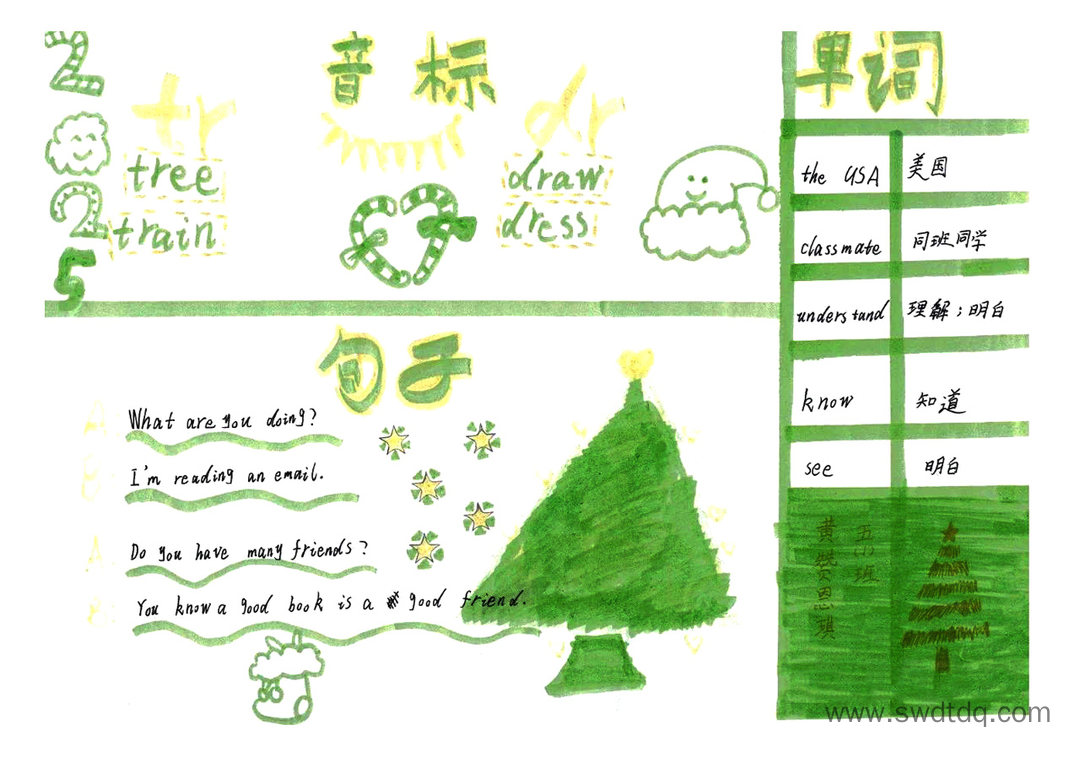 2025
音标
tr
tree
train
dr
draw
dress
句子
A What are you doing?
B I'm reading an email.
A Do you have many friends?
B You know a good book is a good friend.
单词
the USA 美国
classmate 同班同学
understand 理解；明白
know 知道
see 明白
五(1)班
黄 恩琪
www.swdtdq.com